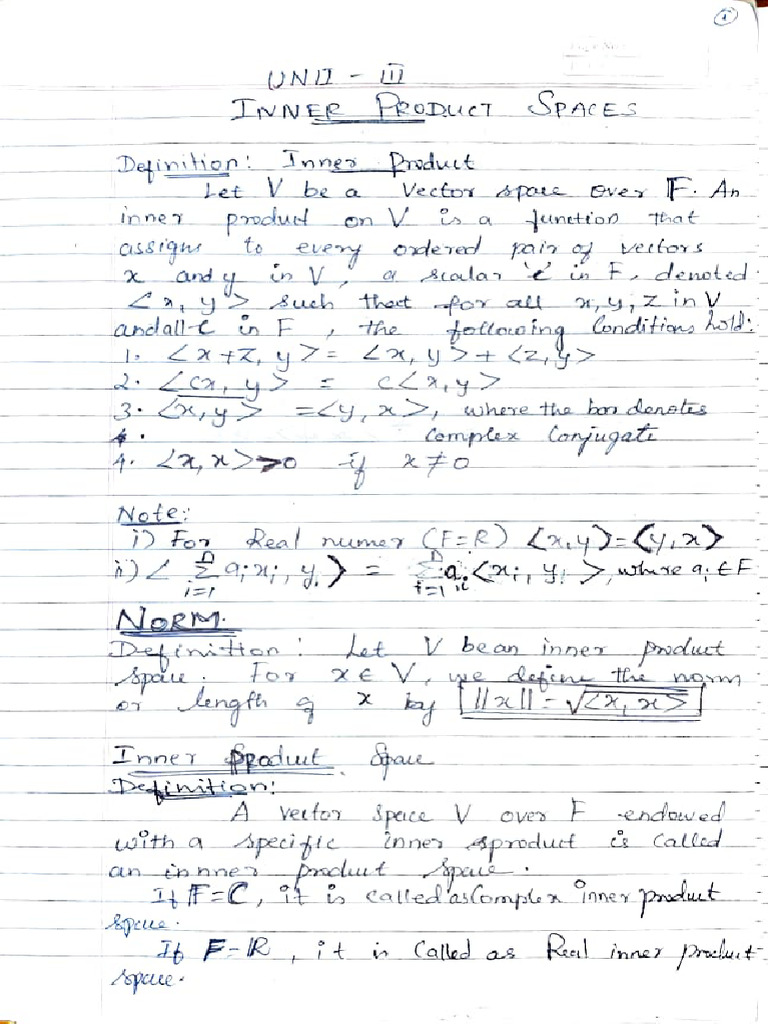 1
UNIT - III
INNER PRODUCT SPACES
Definition: Inner Product
Let V be a Vector space over F. An
inner product on V is a function that
assigns to every ordered pair of vectors
x and y in V, a scalar 'c' in F, denoted
<x, y> such that for all x, y, z in V
and all c in F, the following Conditions hold:
1. <x+z, y> = <x, y> + <z, y>
2. <cx, y> = c<x, y>
3. \overline{<x, y>} = <y, x>, where the bar denotes
complex Conjugate
4. <x, x> >0 if x ≠ 0
Note:
i) For Real numer (F=R) <x,y> = <y,x>
ii) < Σ_{i=1}^{n} a_i x_i, y_i > = Σ_{i=1}^{n} a_i <x_i, y_i>, where a_i ∈ F
NORM.
Definition: Let V be an inner product
space. For x ∈ V, we define the norm
or length of x by ||x|| = √<x, x>
Inner Product Space
Definition:
A vector space V over F endowed
with a specific inner product is called
an innner product space.
If F=C, it is called as Complex inner product
space.
If F=R, it is Called as Real inner product
space.